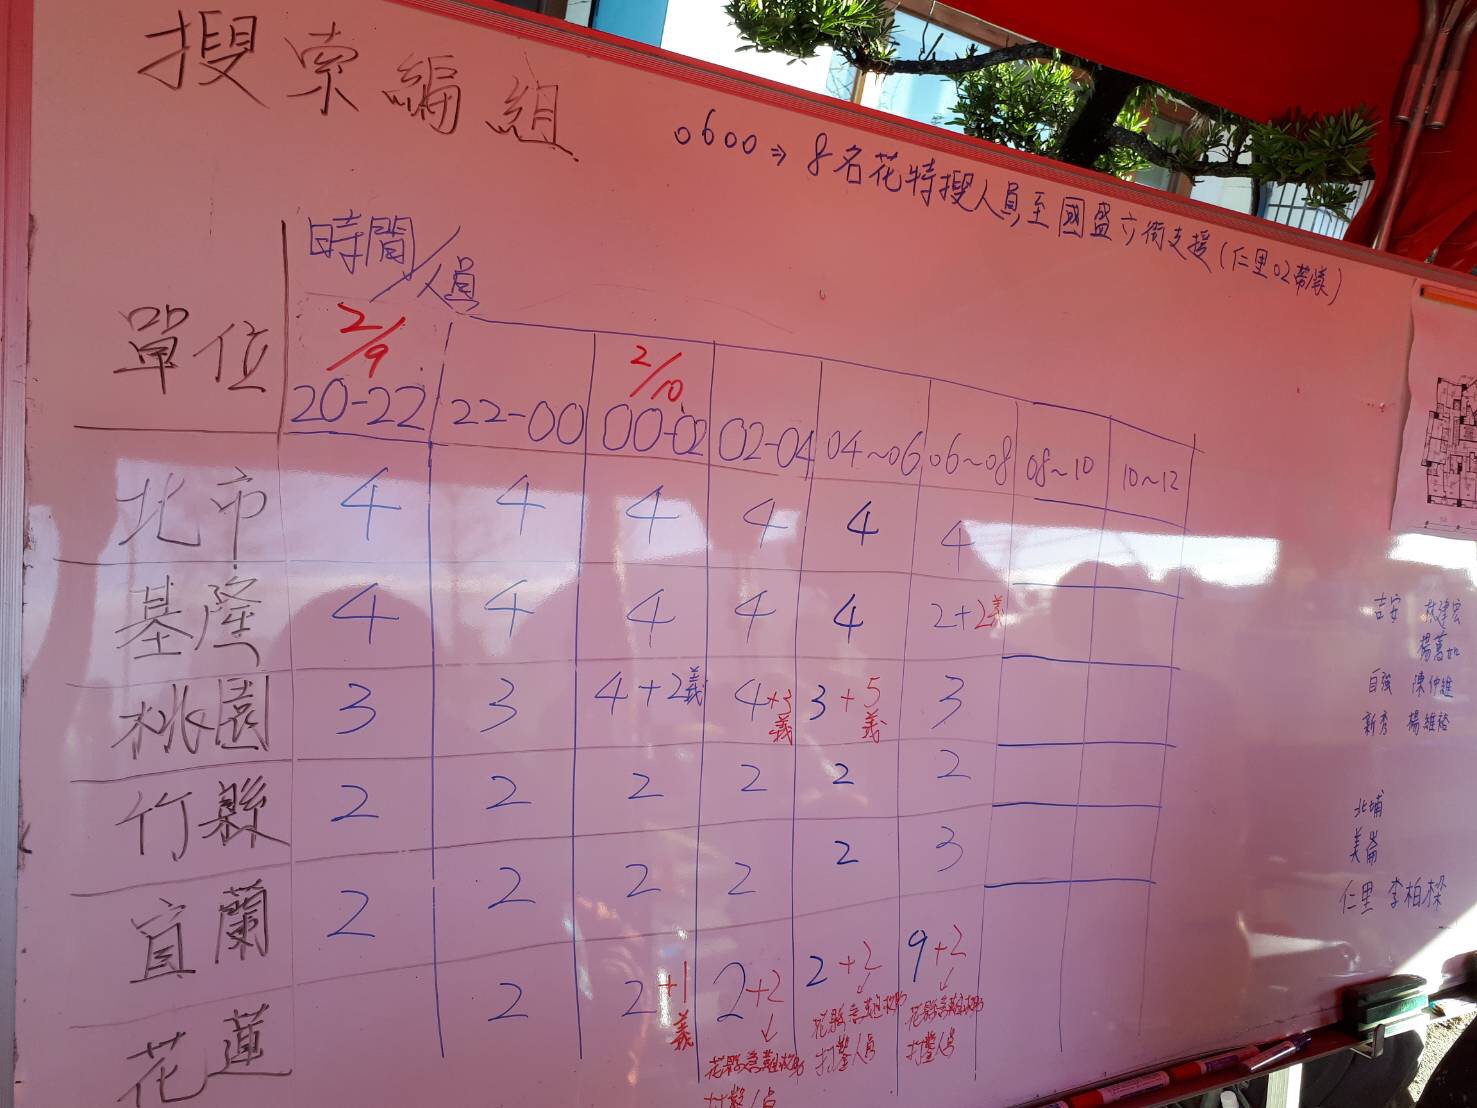 搜索編組
0600⇒8名花特搜人員至國盛六街支援(仁里02帶隊)
單位 時間/人員
2/9 2/10
20-22 22-00 00-02 02-04 04~06 06~08 08~10 10~12
北市 4 4 4 4 4 4
基隆 4 4 4 4 4 2+2義
桃園 3 3 4+2義 4+3義 3+5義 3
竹縣 2 2 2 2 2 2
宜蘭 2 2 2 2 2 3
花蓮 2 2+1義 2+2 2+2 9+2
打鑿人員 打鑿人員
吉安
自強 陳仲維
新秀 楊維裕
北埔
美崙
仁里 李柏樑